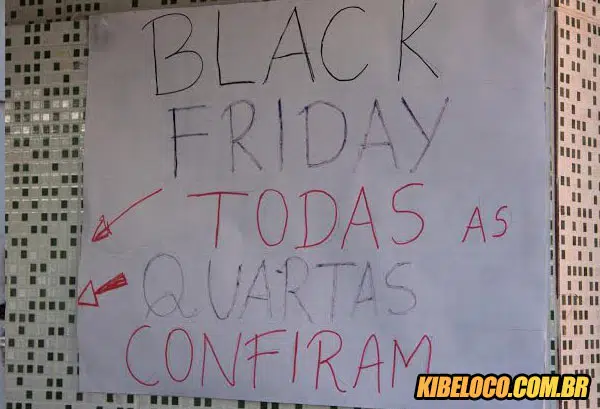 BLACK
FRIDAY
TODAS AS
QUARTAS
CONFIRAM
KIBELOCO.COM.BR